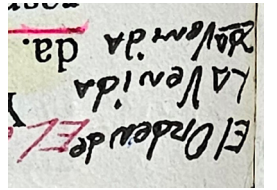 El Orden de EL
La Venida
2da Venida
da.